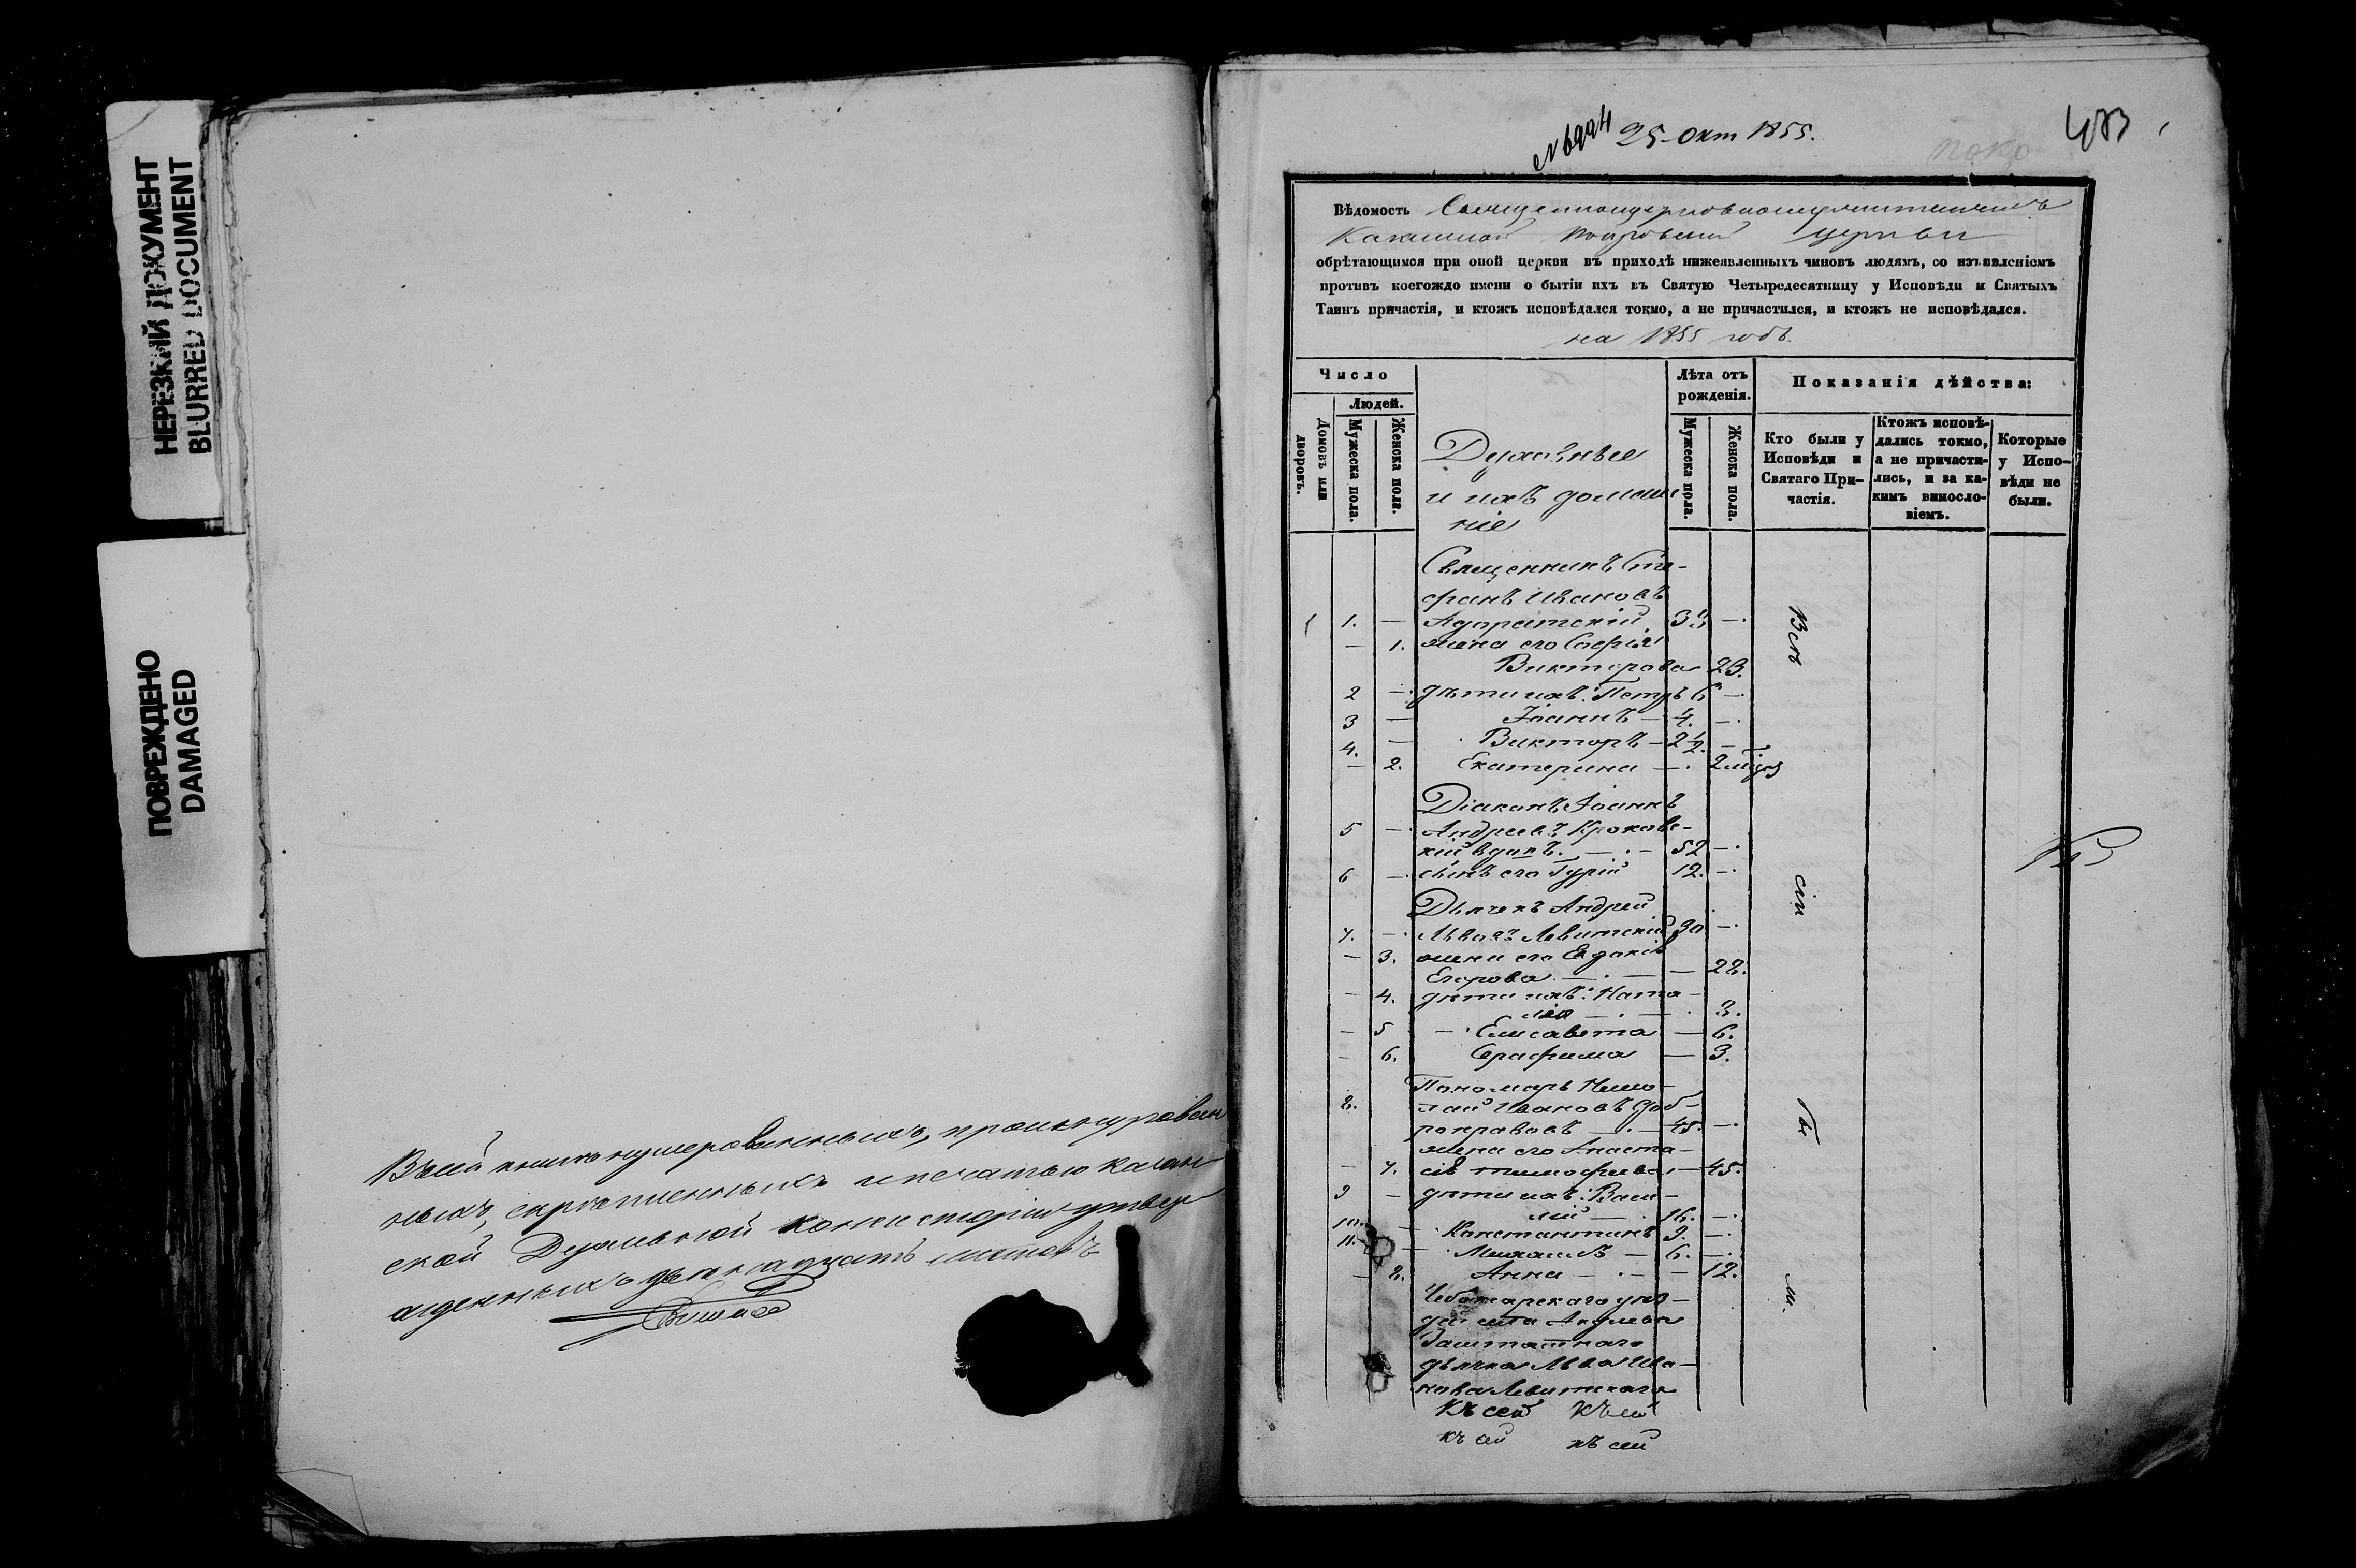 НЕРЕЗКИЙ ДОКУМЕНТ
BLURRED DOCUMENT
ПОВРЕЖДЕНО
DAMAGED
Въ сей книге нумерованныхъ, прошнурован
ныхъ, скрепленныхъ и печатью Казан
ской Духовной Консисторіи утвер
жденныхъ двенадцать листовъ
25 Окт 1855.
483
Вѣдомость
церкви
обрѣтающимся при оной церкви въ приходѣ нижеявленныхъ чиновъ людямъ, со изъявленіемъ
противъ коегождо имени о бытіи ихъ въ Святую Четыредесятницу у Исповѣди и Святыхъ
Таинъ причастія, и ктожъ исповѣдался токмо, а не причастился, и ктожъ не исповѣдался.
на 1855 годъ.
Число
Людей.
Домовъ или дворовъ.
Мужеска пола.
Женска пола.
Духовные
и ихъ домаш
ніе
Лѣта отъ рожденія.
Мужеска пола.
Женска пола.
Показанія дѣйства:
Кто были у Исповѣди и Святаго При-
частія.
Ктожъ исповѣ-
дались токмо,
а не причасти-
лись, и за ка-
кимъ винносло-
віемъ.
Которые
у Испо-
вѣди не
были.
Священникъ Сте-
фанъ Ивановъ
1. —
— 1. жена его Софія
Викторова 23.
2 — дѣти ихъ: Петръ 6 —
3 — Іоаннъ — 4. —
4. — Викторъ — 2 1/2. —
— 2. Екатерина —
Діаконъ Іоаннъ
5 — Андреевъ
вдов. — 52 —
6 — сынъ его Гурій 12. —
Дьячекъ Андрей
7. — Львовъ Левитскій 30 —
— 3. жена его Евдокія
Егорова — 28.
— 4. дѣти ихъ: Ната-
лія —
— 5 — Елисавета — 6.
— 6. Серафима — 3.
Пономарь Нико-
8. лай Ивановъ Доб-
ронравовъ — 45. —
жена его Анаста-
— 7. сія Тимофеева — 45.
9 — дѣти ихъ: Васи-
лій — 16. —
10. — Константинъ 9. —
11. — Михаилъ — 6. —
— 8. Анна — 12.
Чебоксарскаго уѣз-
да села Акулева
Заштатнаго
дьячка Льва Ива-
нова Левитскаго
Къ сей Къ сей
къ сей къ сей
Всѣ
сіи
бы
ли.